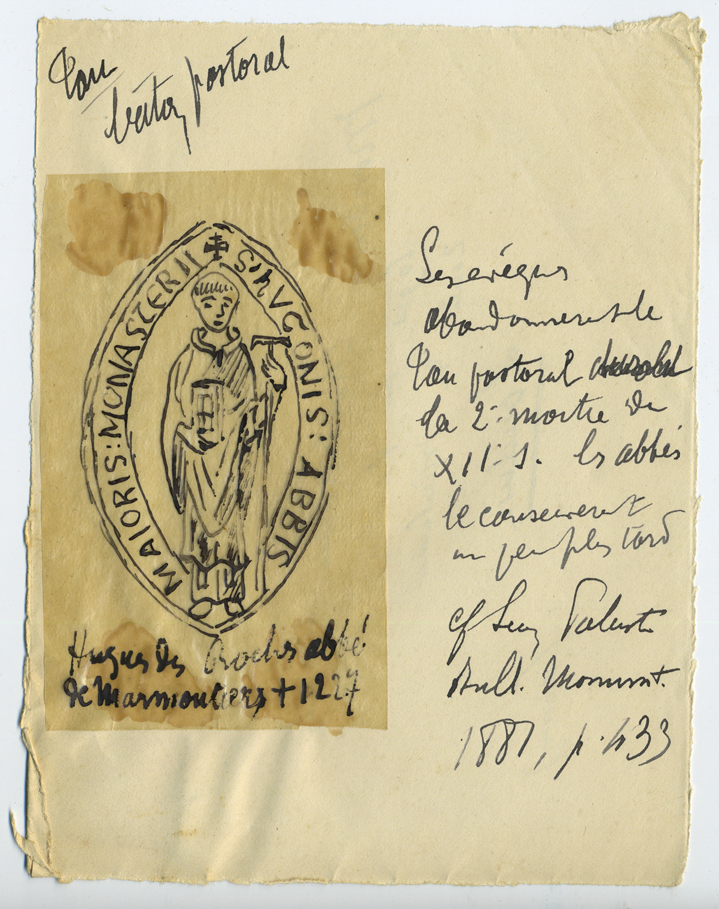 Tau
bâton pastoral
✝ S: HVGONIS: ABBIS
MAIORIS: MONASTERII
Hugues des Roches abbé
de Marmoutiers + 1227
Les evêques
abandonnerent le
Tau pastoral
la 2e moitie du
XIIe s. les abbés
le conserverent
un peu plus tard
cf Leon Palustre
Bull. Monument.
1881, p. 433